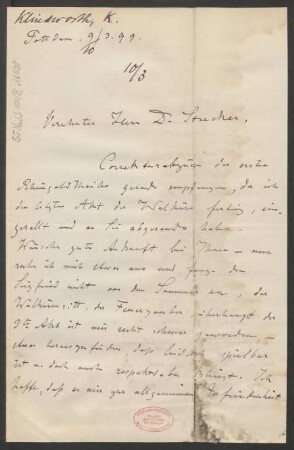 Klindworth, K.
Potsdam, 9/3.99.
10
10/3
Geehrter Herr Dr. Strecker.
Correkturabzüge der ersten
Rheingold Theile gerade empfangen, da ich
den letzten Akt der Walküre fertig, ein-
gesiegelt und an Sie abgesandt habe.
Wünsche gute Ankunft bei Ihnen – nun
ruhe ich mich etwas aus und fange den
Siegfried nicht vor dem Sommer an, der
Walkürenritt, der Feuerzauber überhaupt der
3te Akt ist mir recht schwer geworden,
etwas herauszufinden, das leidlich spielbar
ist u. doch auch respektabel klingt. Ich
hoffe, daß es mir zur allgemeinen Zufriedenheit